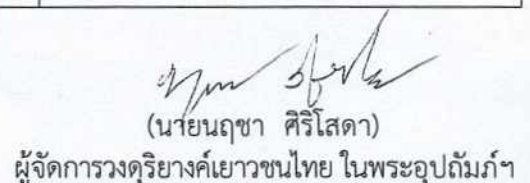 (นายนฤชา ศิริโสดา)
ผู้จัดการวงดุริยางค์เยาวชนไทย ในพระอุปถัมภ์ฯ